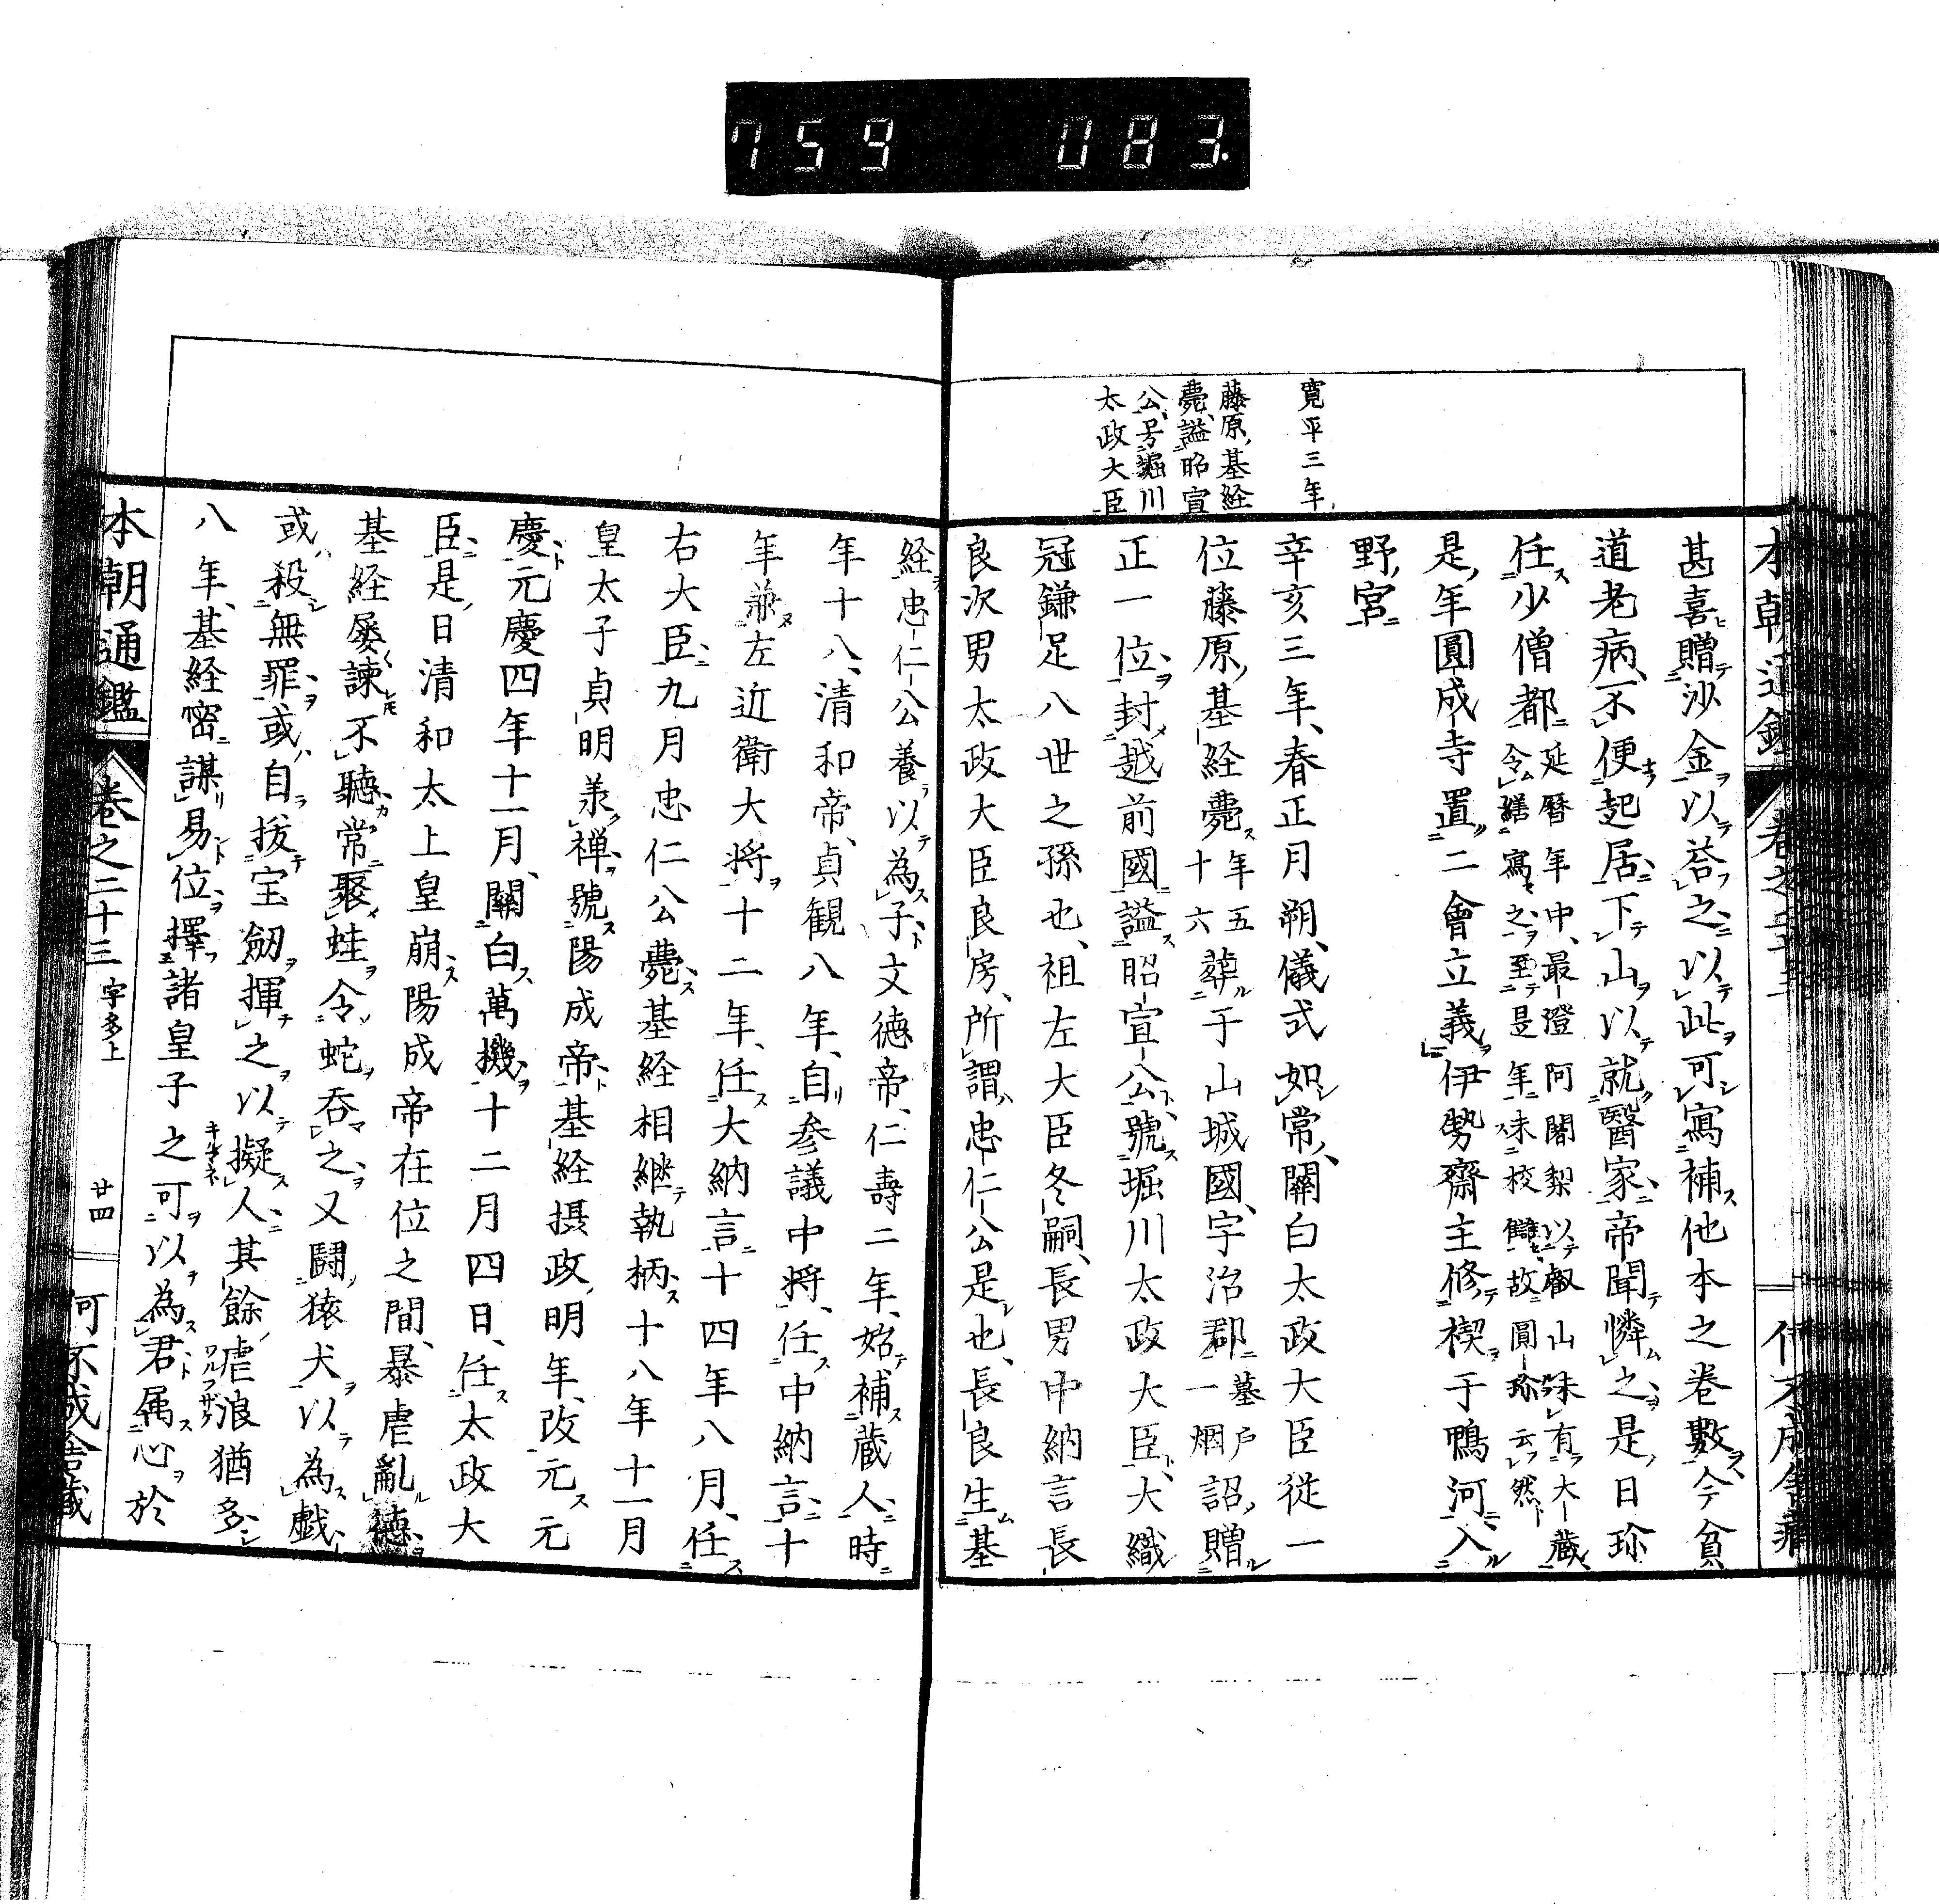 759 083.
寛平三年
藤原基経
薨謚昭宣
公号堀川
太政大臣
甚喜贈沙金以荅之以此可寫補他本之巻數今貧
道老病不便起居下山以就醫家帝聞憐之是日珎
任少僧都延暦年中最澄阿闍梨以叡山未有大藏
令繕寫之至是年未校讎故圓珎云然
是年圓成寺置二會立義伊勢齋主修禊于鴨河入
野宮
辛亥三年春正月朔儀式如常關白太政大臣従一
位藤原基経薨年五十六葬于山城國宇治郡墓戸一烟詔贈
正一位封越前國謚昭宣公號堀川太政大臣大織
冠鎌足八世之孫也祖左大臣冬嗣長男中納言長
良次男太政大臣良房所謂忠仁公是也長良生基
経忠仁公養以為子文徳帝仁壽二年始補蔵人時
年十八清和帝貞観八年自参議中将任中納言十
年兼左近衛大将十二年任大納言十四年八月任
右大臣九月忠仁公薨基経相継執柄十八年十一月
皇太子貞明羕禅號陽成帝基経摂政明年改元元
慶元慶四年十一月關白萬機十二月四日任太政大
臣是日清和太上皇崩陽成帝在位之間暴虐亂徳
基経屡諫不聽常聚蛙令蛇吞之又闘猿犬以為戯
或殺無罪或自拔宝劔揮之以擬人其餘虐浪猶多
八年基経密謀易位擇諸皇子之可以為君属心於
本朝通鑑 巻之二十三 宇多上 廿四